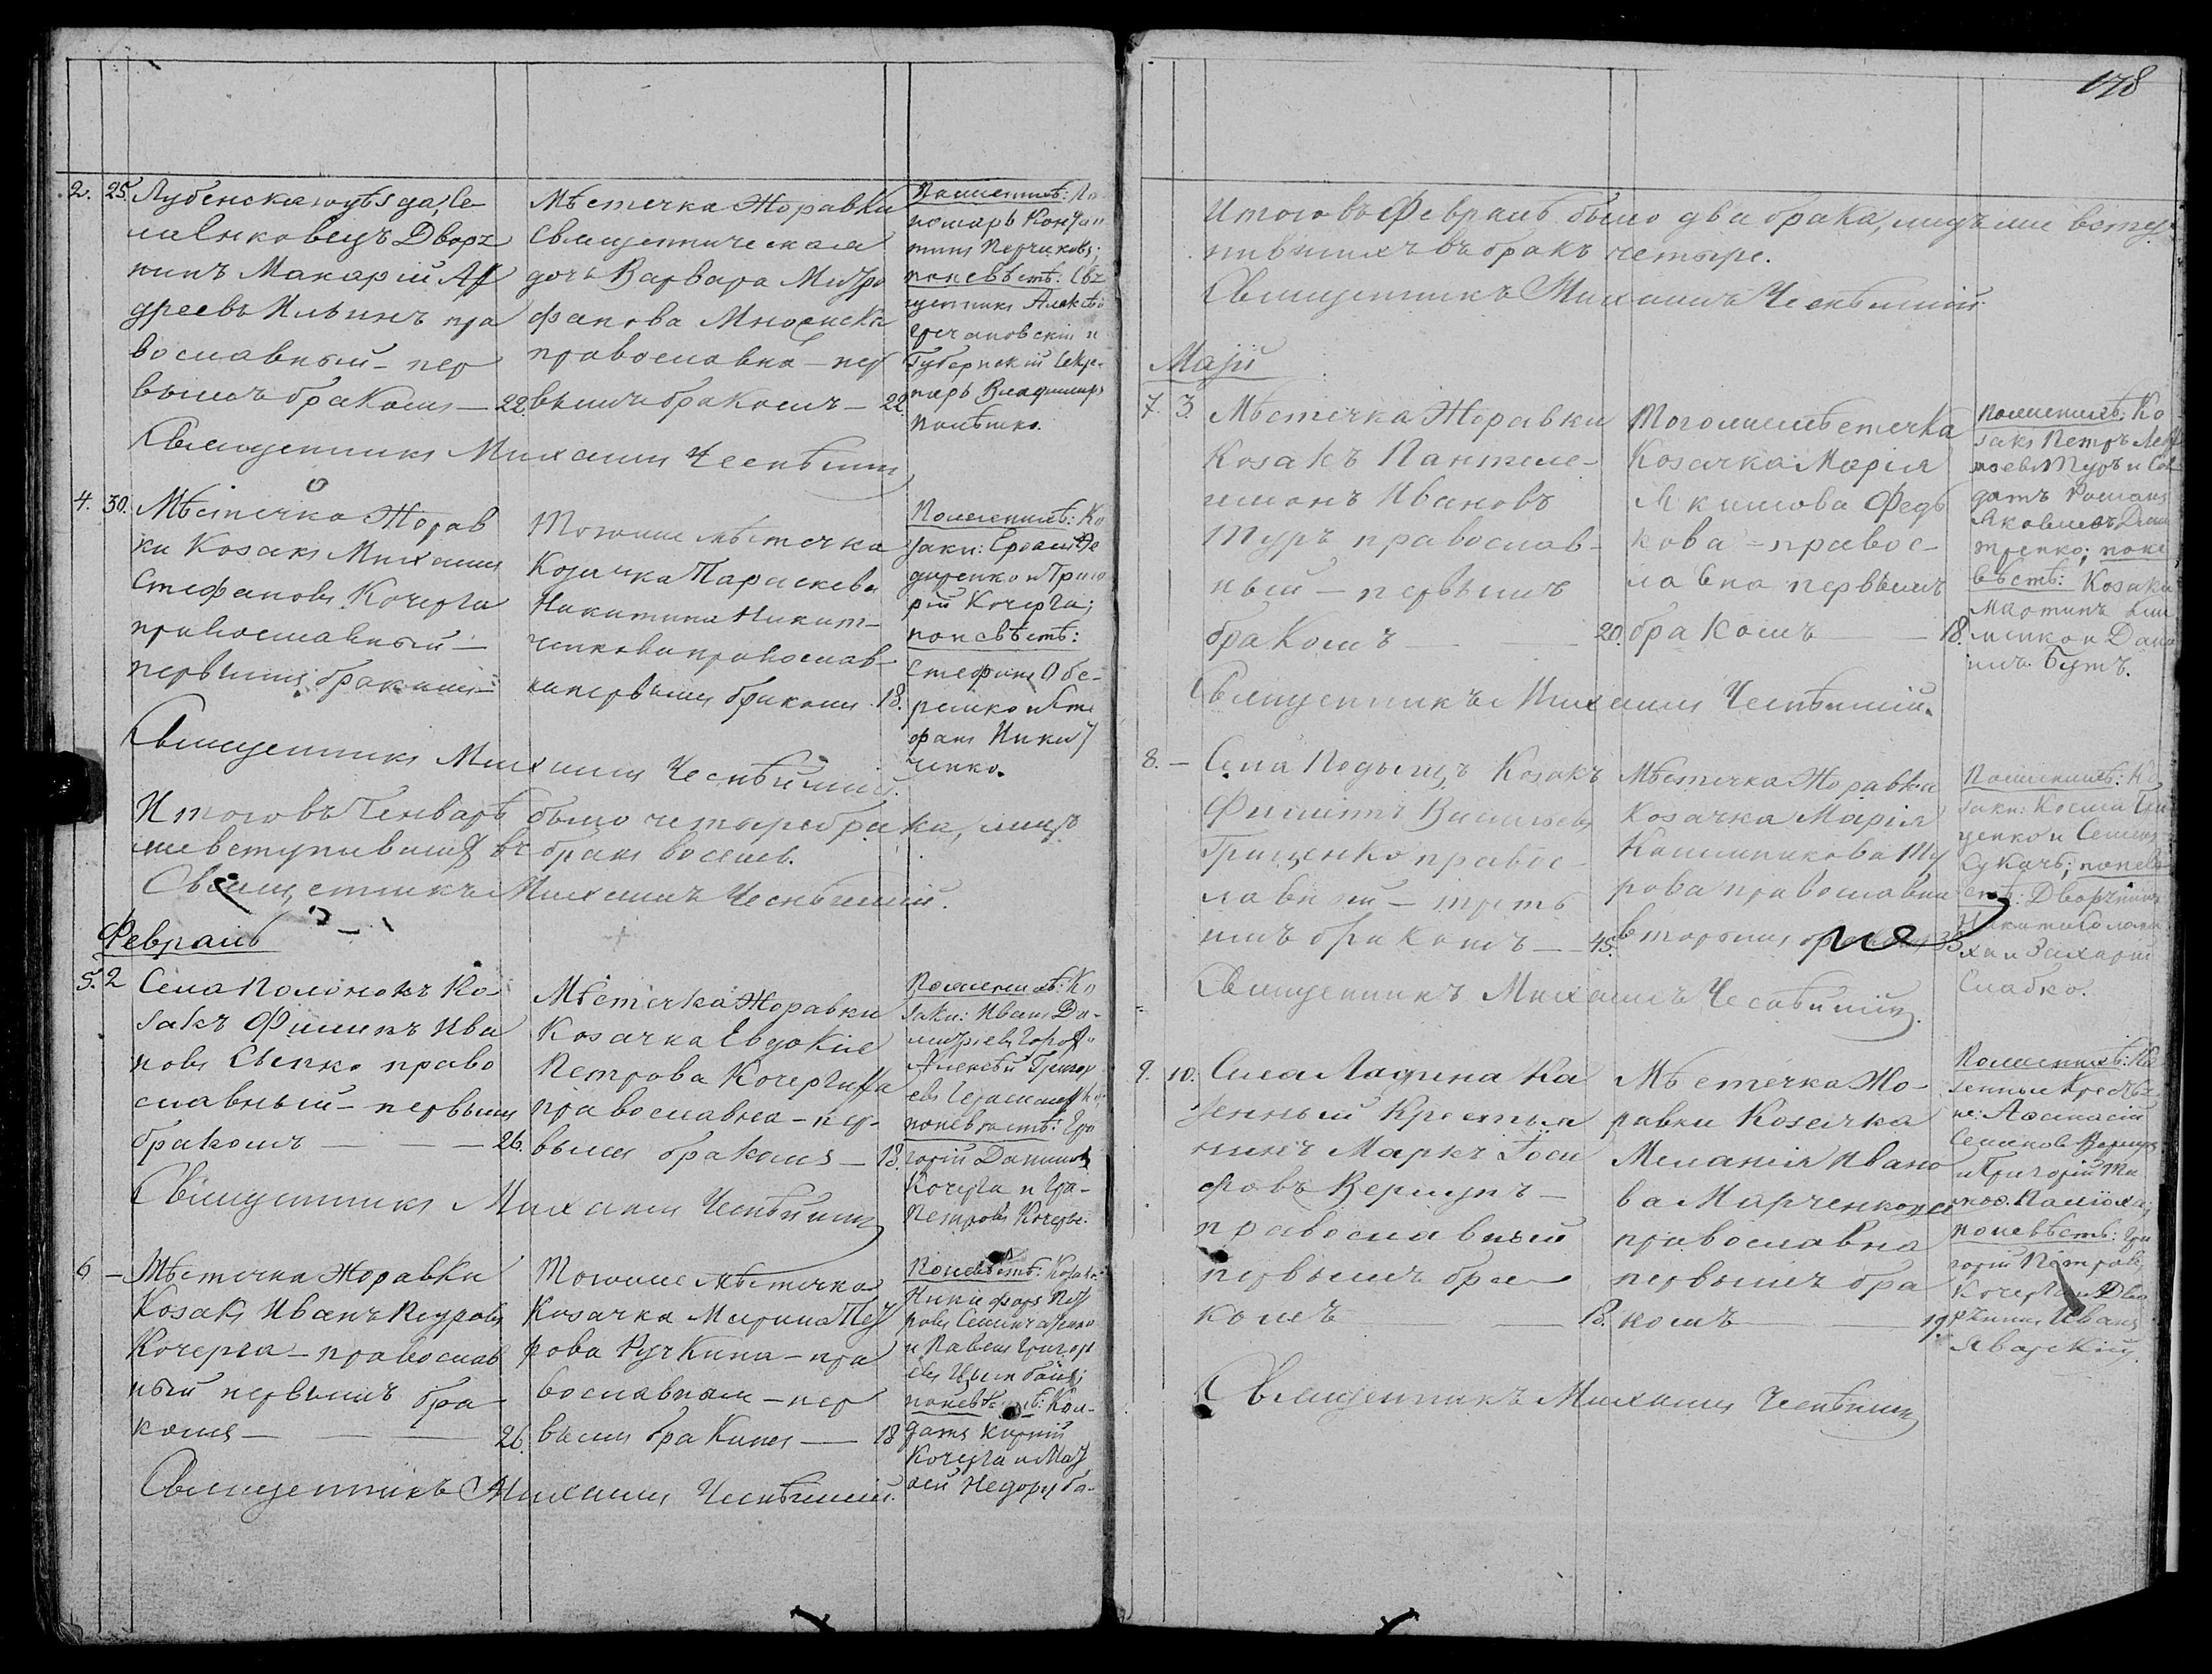 178
2. 25. Лубенскаго уѣзда, Се
лавковецъ Дворя
нинъ Макарій Ан
дреевъ Ильинъ пра
вославный – пер
вымъ бракомъ — 22
Мѣстечка Жоравки
Священническая
дочь Варвара Митро
фанова
православна – пер
вымъ бракомъ – 22.
По женихѣ: По
номарь Констан
тинъ
по невѣстѣ: Свя
щенникъ Алексѣй
Гречановскій и
Губернскій Секре-
тарь Владимиръ
Священникъ Михаилъ
4. 30. Мѣстечка Жорав
ки Козакъ Михаилъ
Стефановъ Кочерга
православный —
первымъ бракомъ –
Того же мѣстечка
Козачка Параскева
Никитина Никит-
ченкова православ-
на первымъ бракомъ 18.
По женихѣ: Ко
заки:
диренко и Григо
рій Кочерга;
по невѣстѣ:
Стефанъ Обе-
ремко и Сте
фанъ Никит
ченко.
Священникъ Михаилъ
Итого въ Генварѣ было четыре брака, лицъ
же вступившихъ въ бракъ восемь.
Священникъ Михаилъ
Февраль
5. 2 Села Полонокъ Ко
закъ Филипъ Ива
новъ право
славный – первымъ
бракомъ — — — 26.
Мѣстечка Жоравки
Козачка Евдокія
Петрова Кочергина
православна – пер-
вымъ бракомъ — 18.
По женихѣ: Ко
заки: Иванъ Ди-
митріевъ
Алексѣй Григор
евъ
по невѣстѣ: Гри
горій Даниловъ
Кочерга и Гри-
Петровъ Кочерга.
Священникъ Михаилъ
6 – Мѣстечка Жоравки
Козакъ Иванъ Петровъ
Кочерга – православ
ный первымъ бра-
комъ — — — 26.
Того же мѣстечка
Козачка Марина Пет
рова Ручкина – пра
вославная – пер
вымъ бракомъ — 18
Никифоръ Пет
ровъ
и Павелъ Григорь
евъ Цымбалъ;
по невѣстѣ: Сол-
датъ
Кочерга и Мат
вей Недоруба.
Священникъ Михаилъ
Итого въ Февралѣ было два брака, лицъ же всту
пившихъ въ бракъ четыре.
Священникъ Михаилъ
Маій
7. 3. Мѣстечка Жоравки
Козакъ Пантеле-
имонъ Ивановъ
Туръ православ-
ный – первымъ
бракомъ — — 20.
Того же мѣстечка
Козачка Марія
Якимова Федь
кова – правос-
лавна первымъ
бракомъ — — 18.
По женихѣ: Ко
закъ Петръ
Туръ и Сол
датъ Романъ
Яковлевъ Дми
тренко; по не
вѣстѣ: Козаки
Мартинъ Кли
менко и Дани
илъ Бутъ.
Священникъ Михаилъ
8. – Села Подыщъ Козакъ
Филипъ Васильевъ
Грищенко правос-
лавный – треть
имъ бракомъ — 45.
Мѣстечка Жоравки
Козачка Марія
Калинникова Ту
рова православна
вторымъ 35
По женихѣ: Ко
заки: Косма Гри
ценко и Семенъ
Сукачъ; по невѣ
стѣ: Дворянинъ
Никита Солома
ха и Захарій
Слабко.
Священникъ Михаилъ
9. 10. Села Ладина Ка
зенный Крестья
нинъ Маркъ Іоси
фовъ Вершунъ –
православный
первымъ бра
комъ — — 18.
Мѣстечка Жо-
равки Козачка
Меланія Ивано
ва Марченкова
православна
первымъ бра
комъ — — 19.
По женихѣ: Ка
зенные Крестья
не: Афанасій
Семеновъ Вершунъ
и Григорій Ти
моф.
по невѣстѣ: Гри
горій Петровъ
Кочерга и Дво
рянинъ Иванъ
Яворскій.
Священникъ Михаилъ